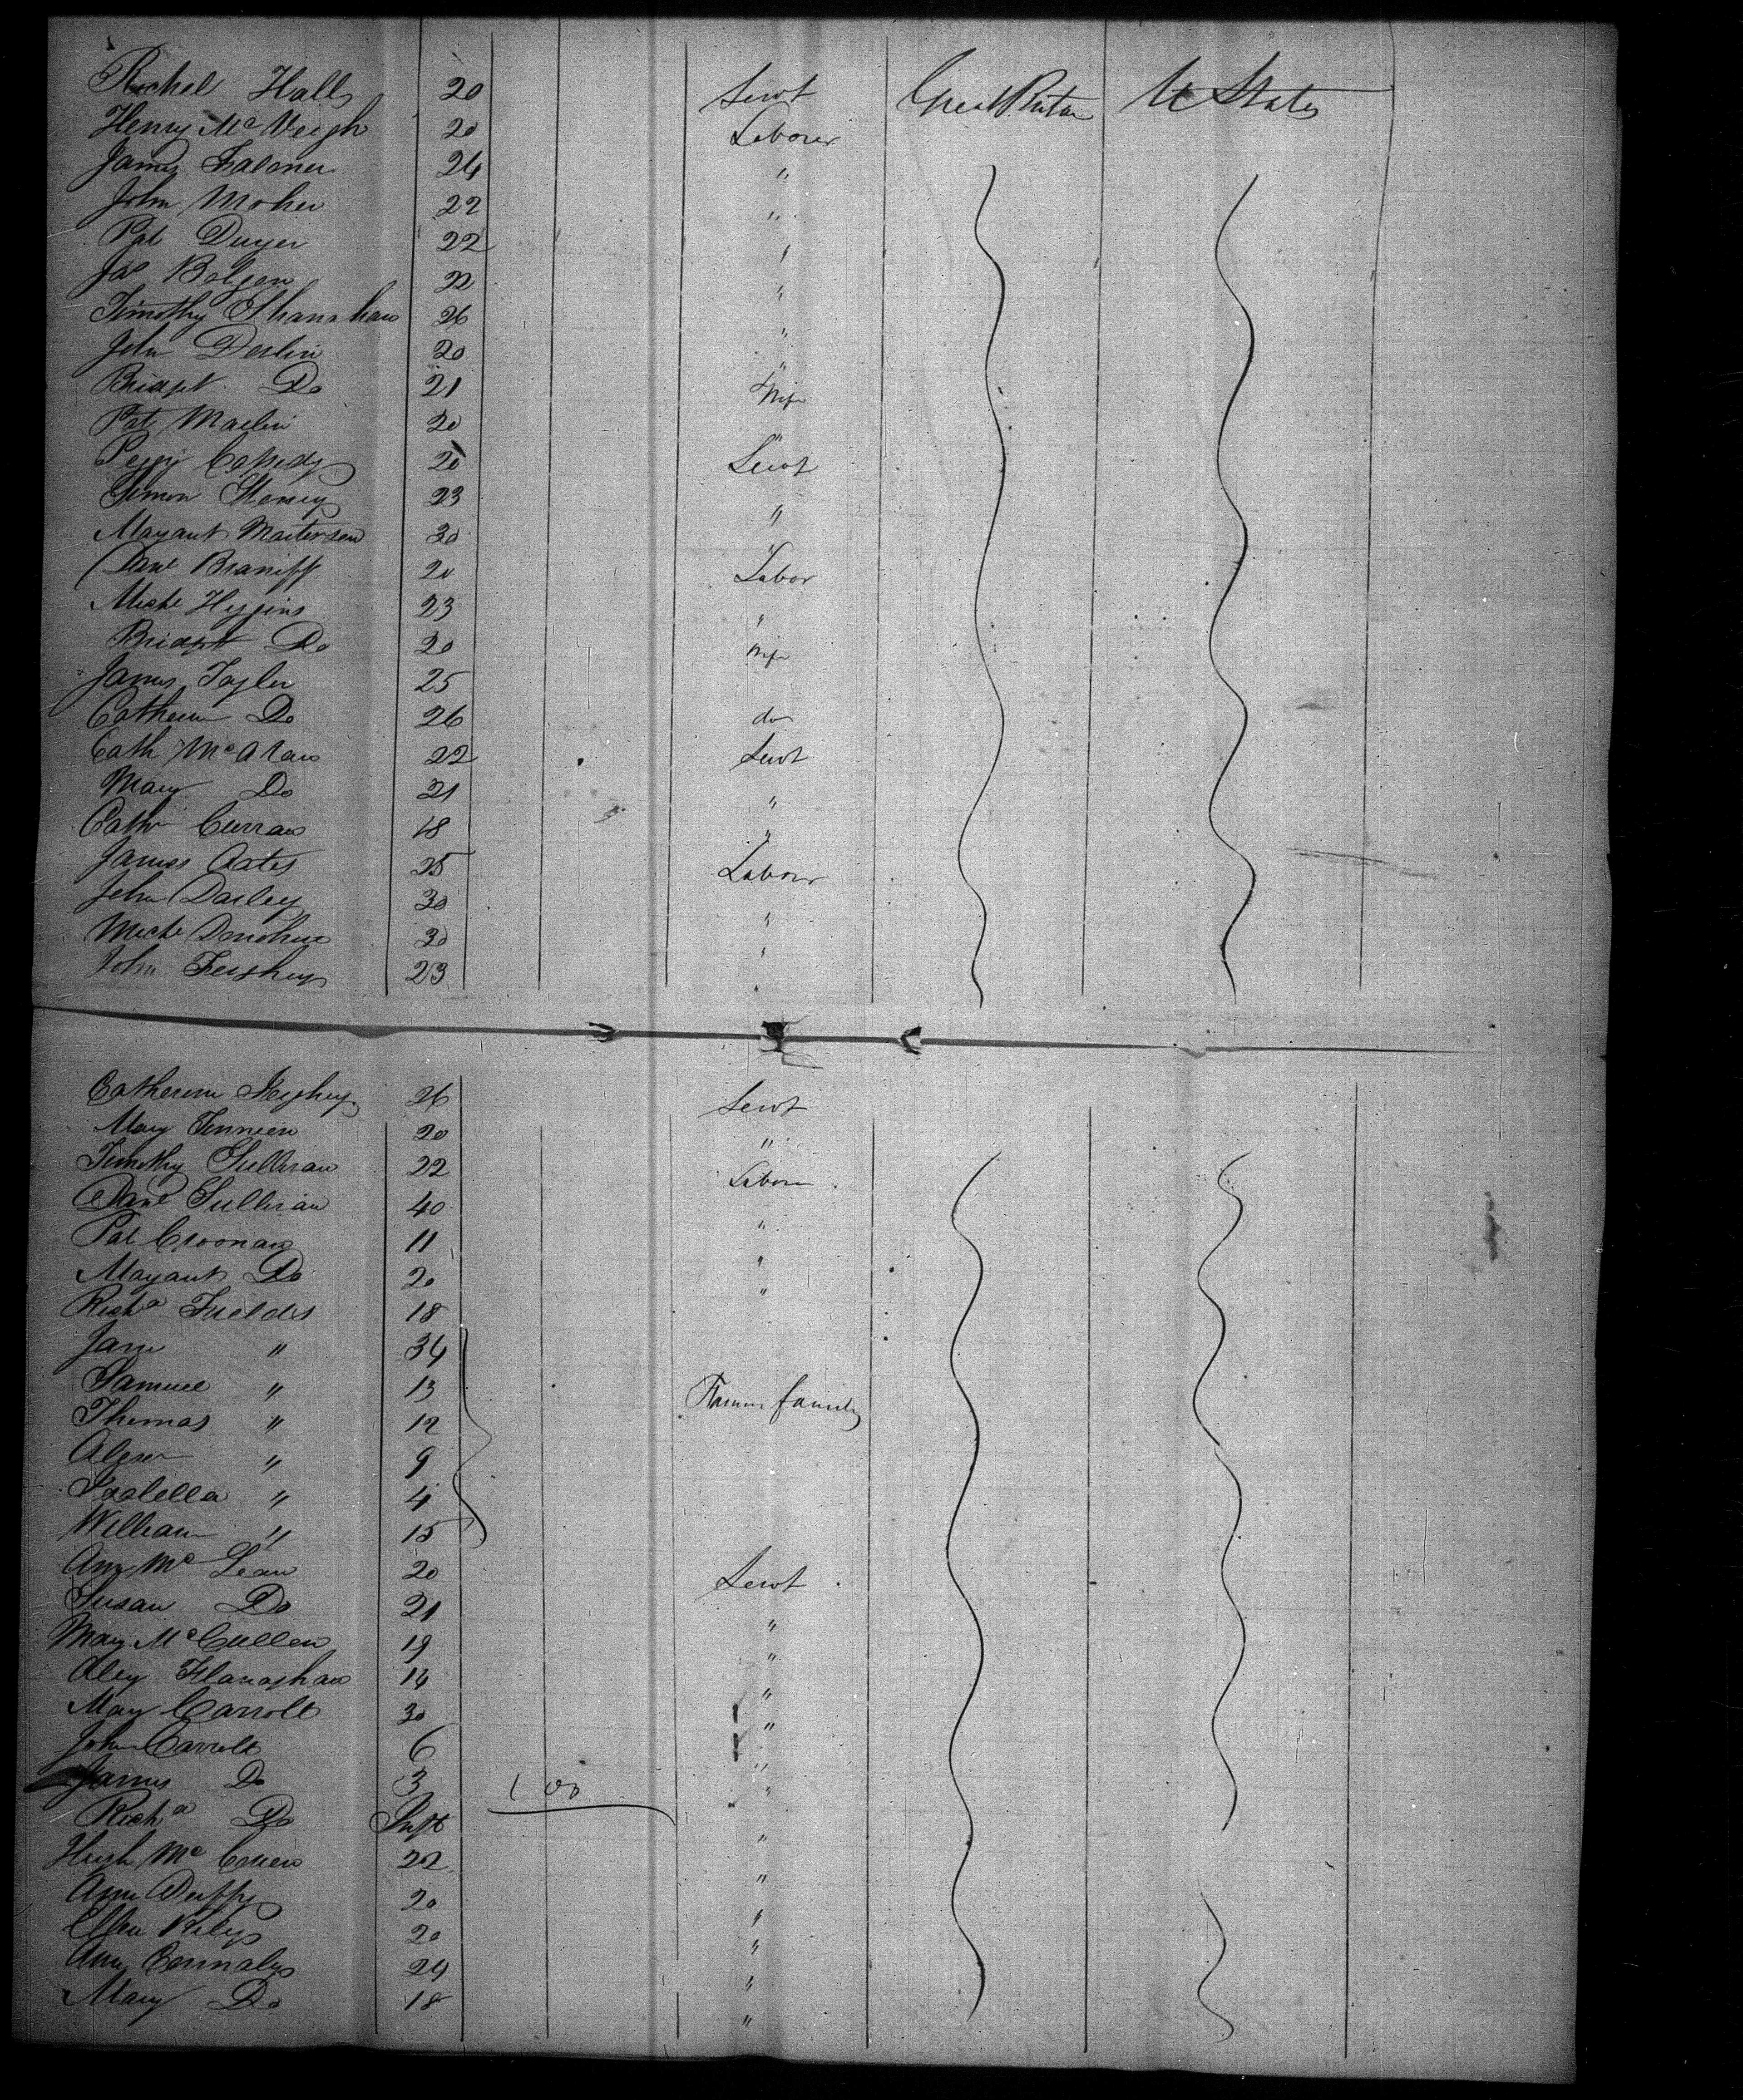 Rachel Hall 20 Servt Great Britain U States
Henry McVeigh 20 Laborer
James Falconer 24 "
John Moher 22 "
Pat Dwyer 22 "
Jas 22 "
Timothy Shanahan 26 "
John Devlin 20 "
Bridget Do 21 Wife
Pat 20 "
Peggy Cassidy 20 Servt
Simon 23 "
Margaret 30 "
Danl Braniff 20 Labor
Michl Higgins 23 "
Bridget Do 20 Wife
James Taylor 25
Catherine Do 26 do
Cath 22 Servt
Mary Do 21 "
Cathe Curran 18 "
James 25 Labour
John Darley 30 "
Michl Donohue 30 "
John 23 "
Catherine 26 Servt
Mary Finneen 20 "
Timothy Sullivan 22 Labour
Danl Sullivan 40 "
Pat Croonan 11 "
Margaret Do 20 "
Richd 18
Jane " 34
Samuel " 13 Farmers family
Thomas " 12
" 9
Isabella " 4
William " 15
Ann McLean 20 Servt
Susan Do 21 "
Mary McCullen 19 "
Flanaghan 14 "
Mary Carroll 30 "
John Carroll 6 "
James Do 3 "
Richd Do Inft "
Hugh Mc 22 "
Ann Duffy 20 "
Ellen Rily 20 "
Ann 24 "
Mary Do 18 "